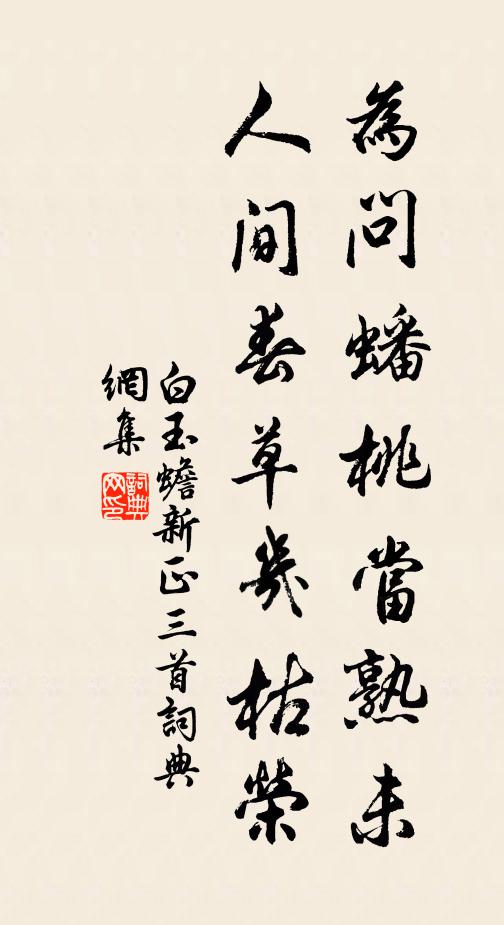 為問蟠桃當熟未
人間春草幾枯榮
白玉蟾新正三首詞典
網集
詞典
网印